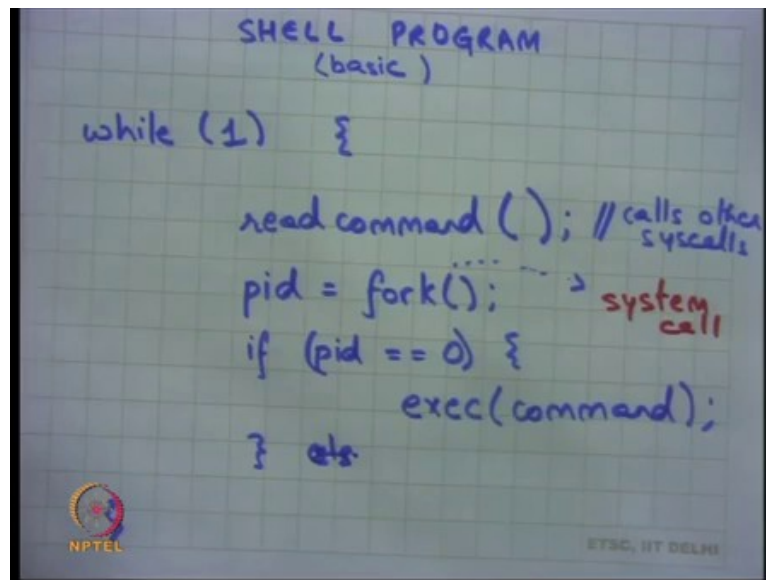 SHELL PROGRAM
(basic)
while (1) {
read command (); // calls other
syscalls
pid = fork();
system
call
if (pid == 0) {
exec(command);
}
NPTEL
ETSC, IIT DELHI